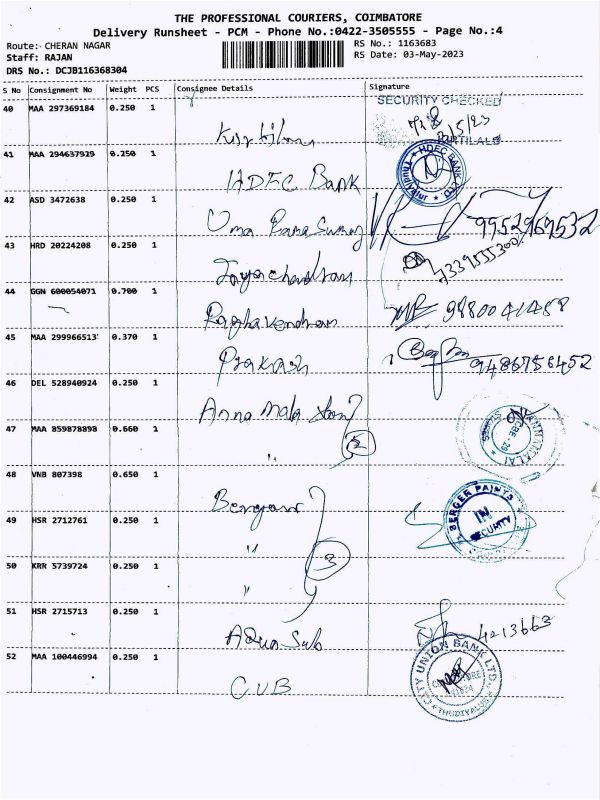 THE PROFESSIONAL COURIERS, COIMBATORE
Delivery Runsheet - PCM - Phone No.:0422-3505555 - Page No.:4
Route: CHERAN NAGAR
RS No.: 1163683
Staff: RAJAN
RS Date: 03-May-2023
DRS No.: DCJB116368304
S No Consignment No Weight PCS Consignee Details Signature
SECURITY CHECKED
40 MAA 297369184 0.250 1
41 MAA 294637929 0.250 1 HDFC Bank
HDFC BANK LTD
42 ASD 3472638 0.250 1 Uma 9952969532
43 HRD 20224208 0.250 1 Jayachandran
44 GGN 600054071 0.700 1 Raghavendran
45 MAA 299966513 0.370 1 Prakash 9486756452
46 DEL 528940924 0.250 1 Anna
47 MAA 859878898 0.660 1 " 2
48 VNB 807398 0.650 1
BERGER PAINTS
IN
SECURITY
49 HSR 2712761 0.250 1 "
50 KRR 5739724 0.250 1 " 3
51 HSR 2715713 0.250 1 Aqua Sub 4213663
52 MAA 100446994 0.250 1 C.U.B
CITY UNION BANK LTD.
THUDIYALUR